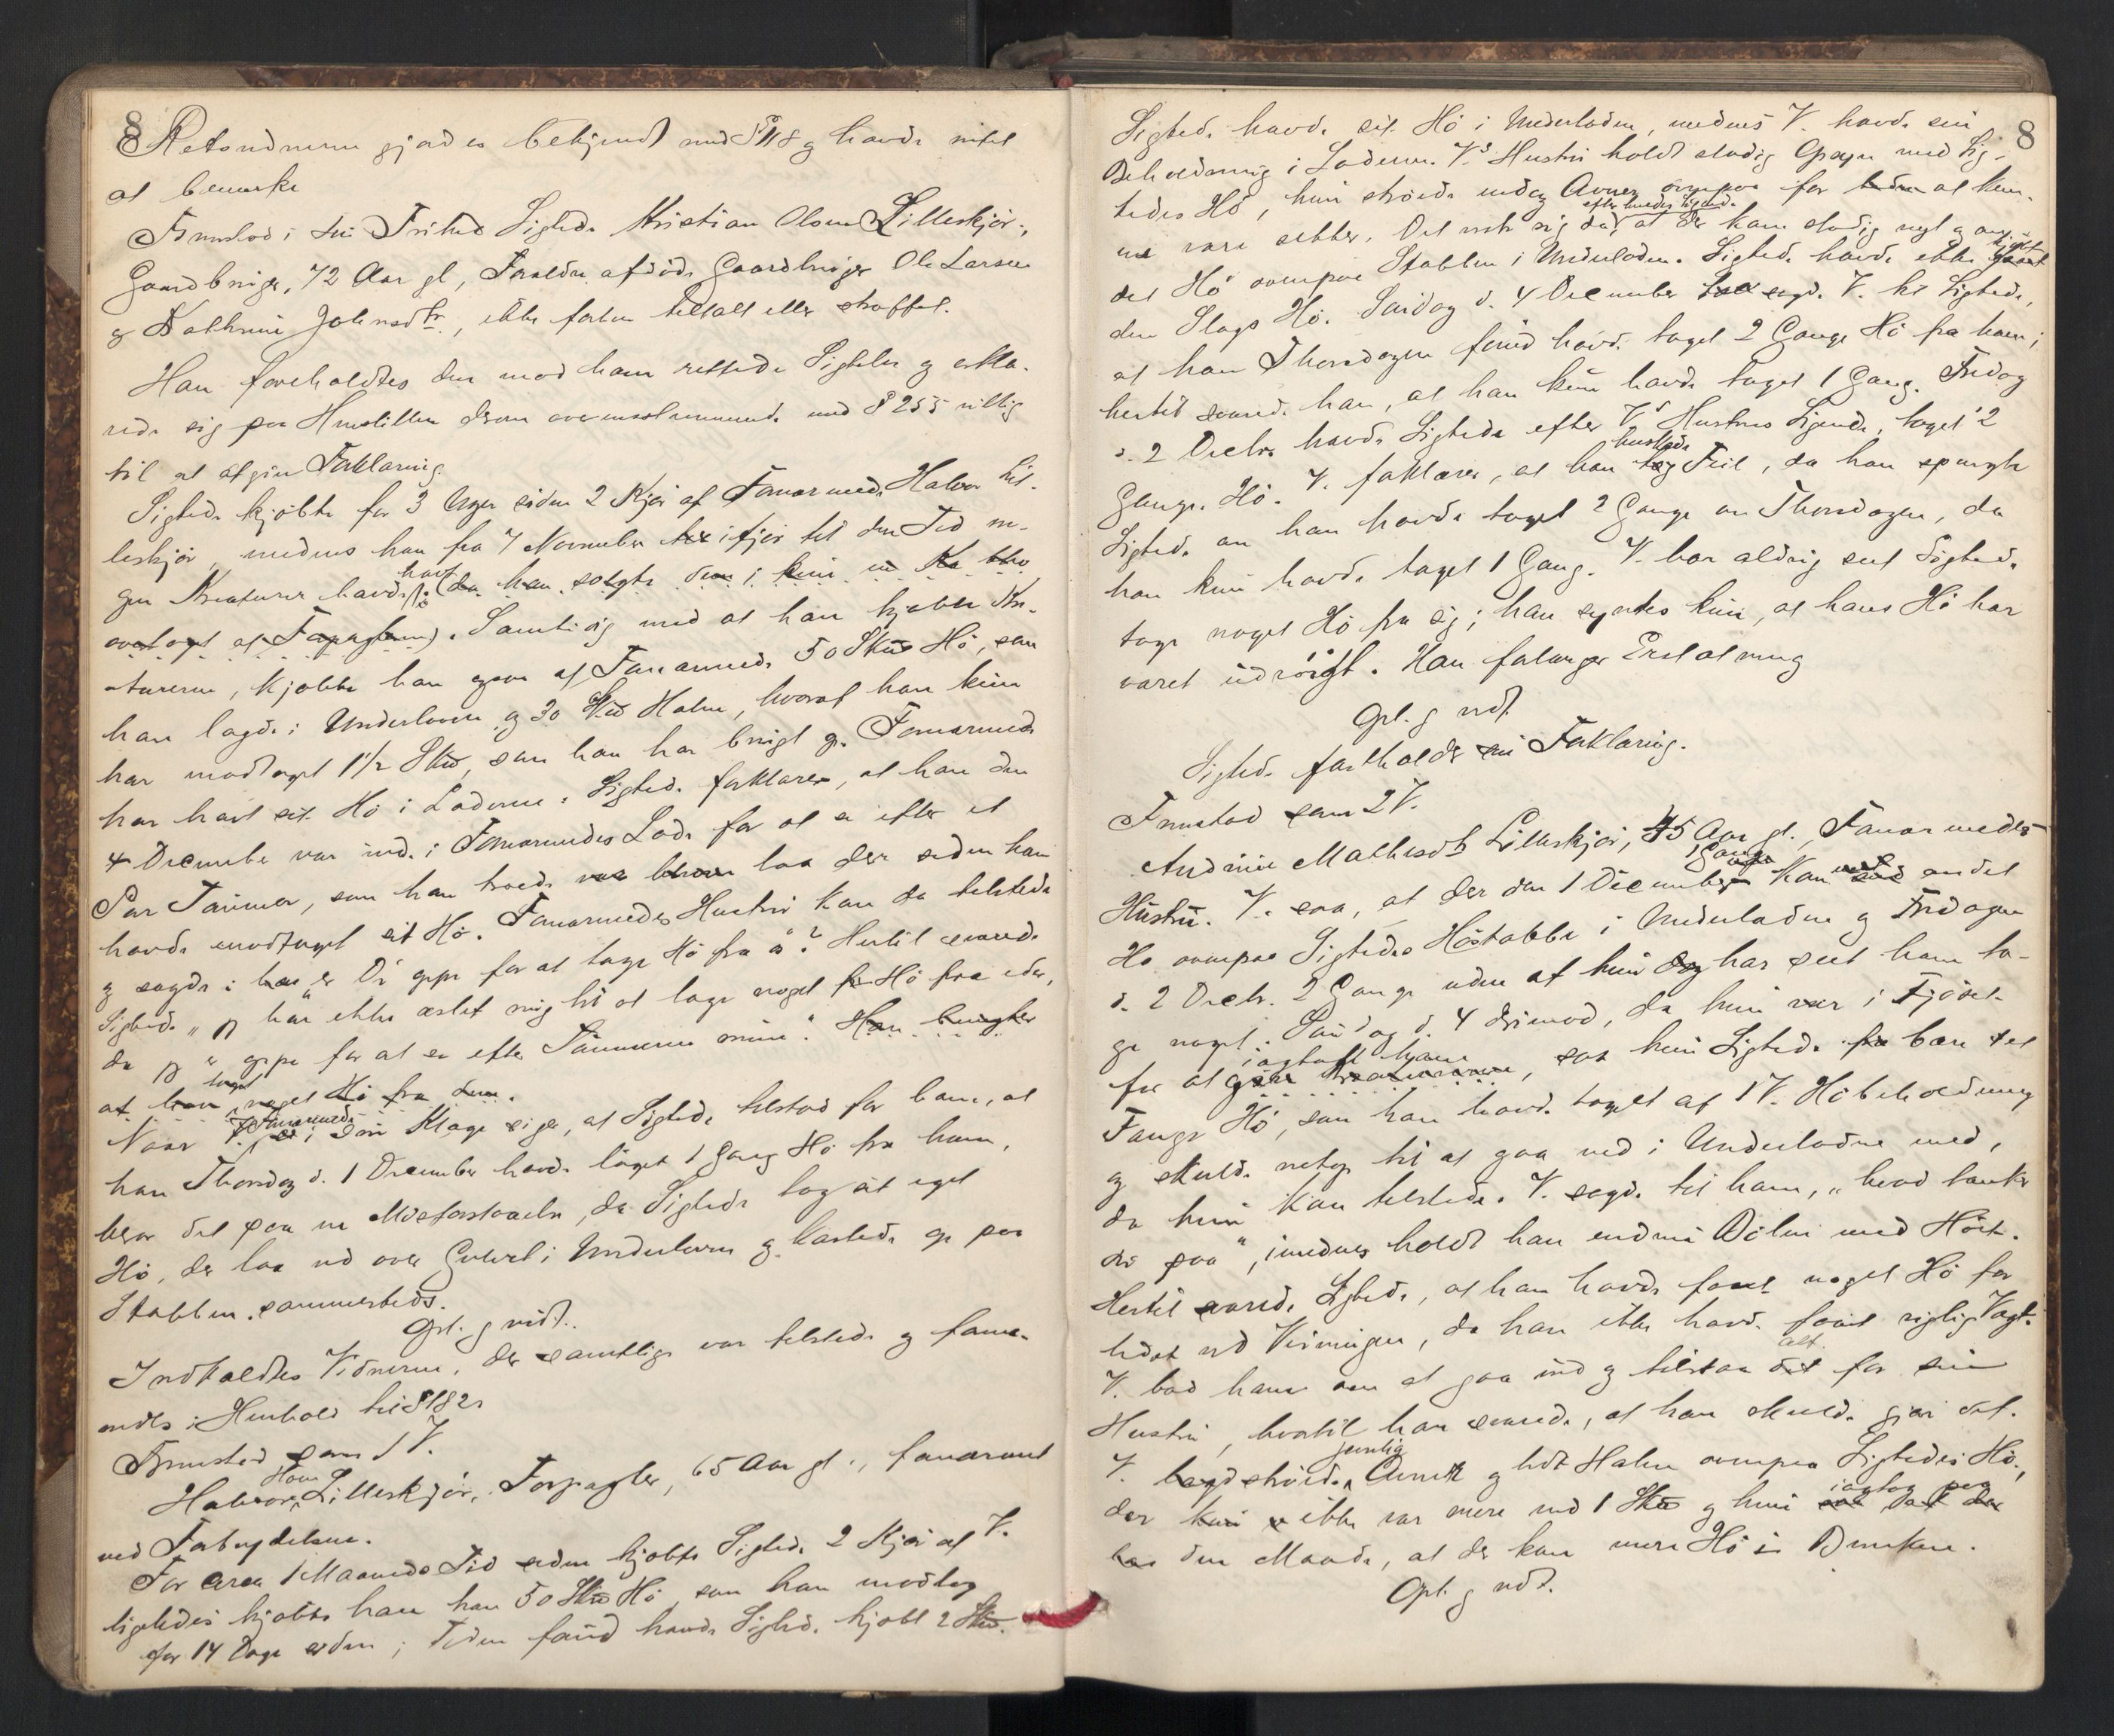 8
Retsvidnerne gjordes bekjendt med § 118 og havde intet
at bemerke
Fremstod i sin Frihed Sigtede Kristian Olsen Lilleskjør,
Gaardbruger, 72 Aar gl, Forældre afdøde Gaardbruger Ole Larsen
og Kathrine Johnsdtr, ikke forhen tiltalt eller straffet.
Han foreholdtes den mod ham rettede Sigtelse og erklæ-
rede sig paa Henstillen derom overensstemmende med § 255 villig
til at afgive Forklaring.
Sigtede kjøbte for 3 Uger siden 2 Kjør af Fornærmede Halvor Lil-
leskjør, medens han fra 7 November ifjor til den Tid in-
gen Kreaturer havde havt (da han solgte dem i
overtaget af Forpagteren). Samtidig med at han kjøbte Kre-
aturerne, kjøbte han ogsaa af Fornærmede 50 Skud Hø, som
han lagde i Underloven og 30 Skud Halm, hvoraf han kun
har modtaget 1½ Skud, som han har brugt op. Fornærmede
har havt sit Hø i Laderne. Sigtede forklarer, at han den
4 December var inde i Fornærmedes Lade for at se efter et
Par Tømmer, som han troede laa der siden han
havde modtaget sit Hø. Fornærmedes Hustru kom da tilstede
og sagde: er Di oppe for at tage Hø fra os? Hertil svarede
Sigtede "jeg har ikke æslet mig til at tage noget Hø fra eder,
da jeg er oppe for at se efter Tømmerne mine." Han benegter
at han taget noget Hø fra dem.
Naar Fornærmede i sin Klage siger, at Sigtede tilstod for ham, at
han Thorsdag d. 1 December havde taget 1 Gang Hø fra ham,
beror det paa en Misforstaaelse, da Sigtede tog sit eget
Hø, der laa ud over Gulvet i Underloven og kastede op paa
Stabben sammesteds.
Opl. g vedt.
Indkaldtes Vidnerne, der samtlige var tilstede og forma-
nedes i Henhold til § 182.
Fremstod som 1 V.
Halvor Lilleskjør, Forpagter, 65 Aar gl., fornærmet
ved Forbrydelsen.
For circa 1 Maaneds Tid siden kjøbte Sigtede 2 Kjør af V.
ligeledes kjøbte han 50 Skud Hø, som han modtog
for 14 Dage siden; Tiden forud havde Sigtede kjøbt 2 Skud.
8
Sigtede havde sit Hø i Underladen, medens V. havde sin
Beholdning i Laderne. V.s Hustru holdt stadig Opsyn med Sig-
tedes Hø, hun strøede endog Avner ovenpaa for at kun-
ne være sikker. Det viste sig da, efter hendes Sigende at der kom stadig nyt og
det Hø ovenpaa Stabben i Underladen. Sigtede havde ikke kjøbt
den Slags Hø. Søndag d. 4 December sagde V. til Sigtede,
at han Thorsdagen forud havde taget 2 Gange Hø fra ham;
hertil svarede han, at han kun havde taget 1 Gang. Fredag
d. 2 Decbr havde Sigtede efter V.s Hustrues Sigende, taget 2
Gange Hø. V. forklarer, at han huskede Feil, da han spurgte
Sigtede om han havde taget 2 Gange om Thorsdagen, da
han kun havde taget 1 Gang. V. har aldrig seet Sigtede
tage noget Hø fra sig; han syntes kun, at hans Hø har
været udrøigt. Han forlanger Erstatning
Opl. g vedt.
Sigtede fastholder sin Forklaring.
Fremstod som 2 V.
Andrine Mathisdt. Lilleskjør, 45 Aar gl., Fornærmedes
Hustru. V. saa, at der den 1 December 1 Gang kom andet
Hø ovenpaa Sigtedes Høstabbe i Underladen og Fredagen
d. 2 Decbr. 2 Gange uden at hun dog har seet ham ta-
ge noget. Søndag d. 4 derimod, da hun var i Fjøset
for at iagttage ham, saa hun Sigtede bære et
Fange Hø, som han havde taget af 1 V. Høbeholdning
og skulde netop til at gaa ned i Underladen med,
da hun kom tilstede. V. sagde til ham, "hvad tænker
di paa", imedens holdt han endnu Dølen med Høet.
Hertil svarede Sigtede, at han havde faaet noget Hø for
lidet ved Veiningen, da han ikke havde faaet rigtig Vægt.
V. bad ham om at gaa ind og tilstaa alt for sin
Hustru, hvortil han svarede, at han skulde gjøre det.
V. strøede jevnlig Avner og lidt Halm ovenpaa Sigtedes Hø,
der ikke var mere end 1 Skud og hun iagtog paa
den Maade, at der kom mere Hø i Dynken.
Opl. g vedt.